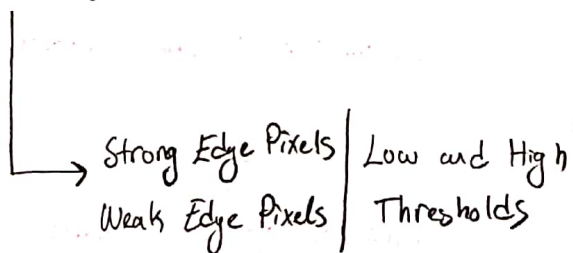 Strong Edge Pixels | Low and High
Weak Edge Pixels | Thresholds